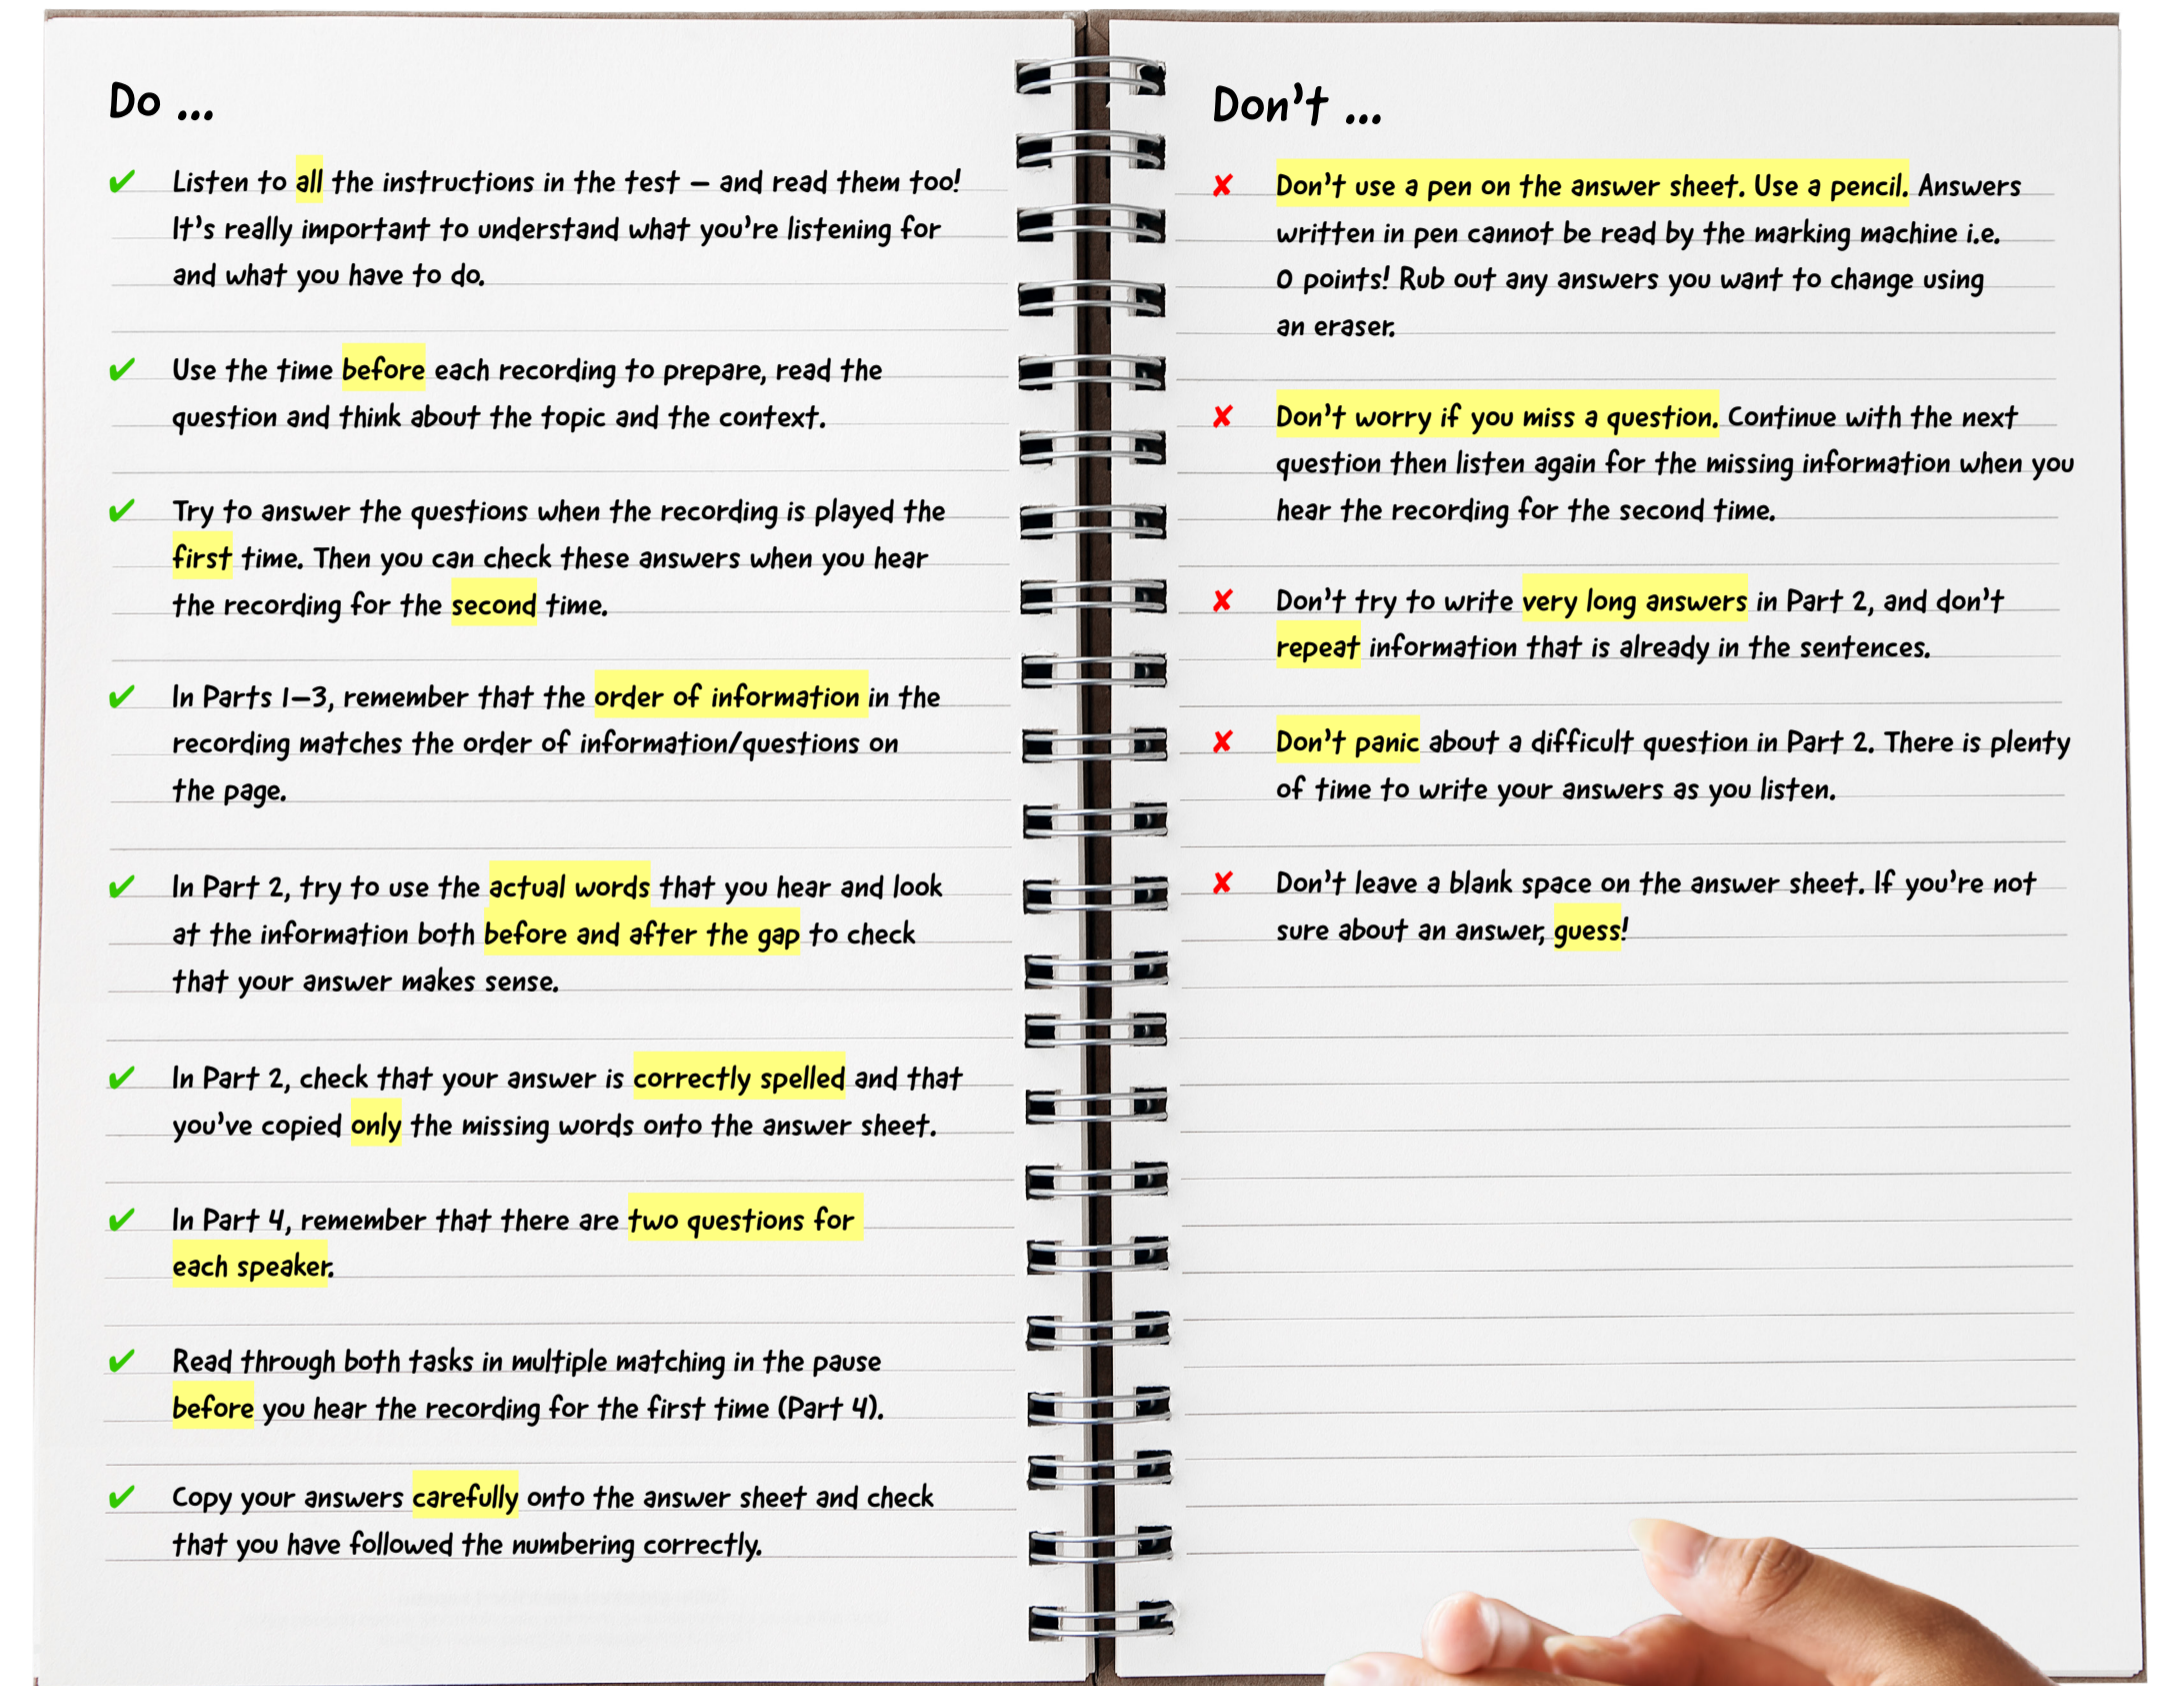 Do ...
Listen to all the instructions in the test – and read them too!
It's really important to understand what you're listening for
and what you have to do.
Use the time before each recording to prepare, read the
question and think about the topic and the context.
Try to answer the questions when the recording is played the
first time. Then you can check these answers when you hear
the recording for the second time.
In Parts 1–3, remember that the order of information in the
recording matches the order of information/questions on
the page.
In Part 2, try to use the actual words that you hear and look
at the information both before and after the gap to check
that your answer makes sense.
In Part 2, check that your answer is correctly spelled and that
you've copied only the missing words onto the answer sheet.
In Part 4, remember that there are two questions for
each speaker.
Read through both tasks in multiple matching in the pause
before you hear the recording for the first time (Part 4).
Copy your answers carefully onto the answer sheet and check
that you have followed the numbering correctly.
Don't ...
Don't use a pen on the answer sheet. Use a pencil. Answers
written in pen cannot be read by the marking machine i.e.
0 points! Rub out any answers you want to change using
an eraser.
Don't worry if you miss a question. Continue with the next
question then listen again for the missing information when you
hear the recording for the second time.
Don't try to write very long answers in Part 2, and don't
repeat information that is already in the sentences.
Don't panic about a difficult question in Part 2. There is plenty
of time to write your answers as you listen.
Don't leave a blank space on the answer sheet. If you're not
sure about an answer, guess!